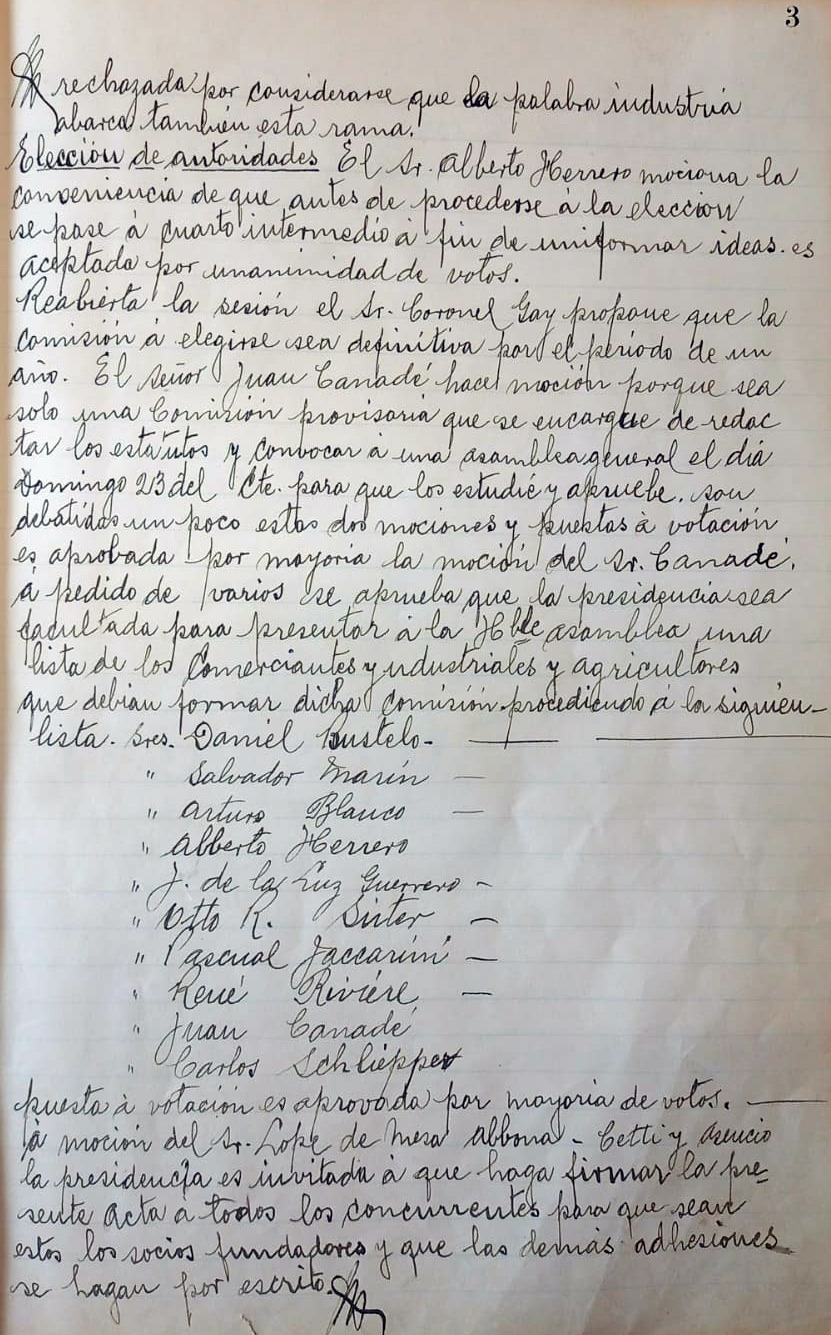 3
rechazada por considerarse que la palabra industria
abarca también esta rama.
Elección de autoridades El Sr. Alberto Herrero mociona la
conveniencia de que antes de procederse à la eleccion
se pase à cuarto intermedio à fin de uniformar ideas. es
aceptada por unanimidad de votos.
Reabierta la sesión el Sr. Coronel Gay propone que la
comisión à elegirse sea definitiva por el período de un
año. El señor Juan Canadé hace moción porque sea
solo una Comisión provisoria que se encargue de redac
tar los estatutos y convocar à una asamblea general el día
Domingo 23 del Cte. para que los estudié y apruebe. son
debatidas un poco estas dos mociones y puestas à votación
es aprobada por mayoria la moción del Sr. Canadé.
à pedido de varios se aprueba que la presidencia sea
facultada para presentar à la Hble asamblea una
lista de los Comerciantes y industriales y agricultores
que debian formar dicha comisión procediendo à la siguien-
lista. Sres. Daniel Bustelo -
" Salvador Marín -
" Arturo Blanco -
" Alberto Herrero
" J. de la Luz Guerrero -
" Otto R. Sister -
" Pascual Jaccarini -
" René Riviére -
" Juan Canadé
" Carlos Schliepper
puesta à votación es aprovada por mayoria de votos. -
à moción del Sr. Lope de Mesa Abbona - Cetti y Asencio
la presidencia es invitada à que haga firmar la pre=
sente acta à todos los concurrentes para que sean
estos los socios fundadores y que las demás adhesiones
se hagan por escrito.